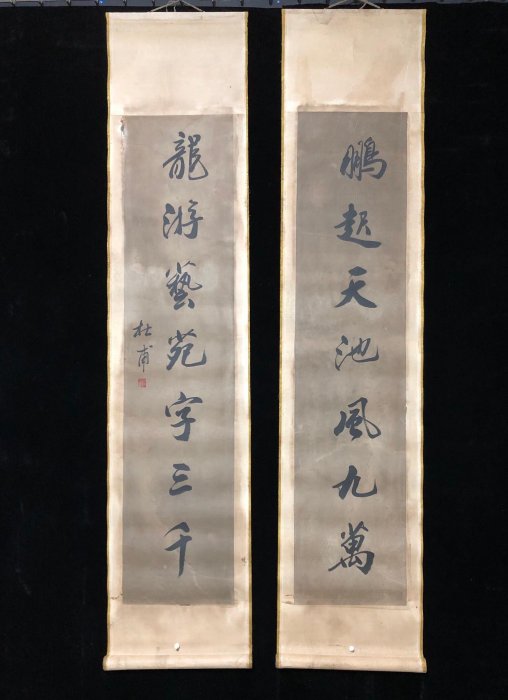 鵬起天池風九萬
龍游藝苑字三千
杜甫